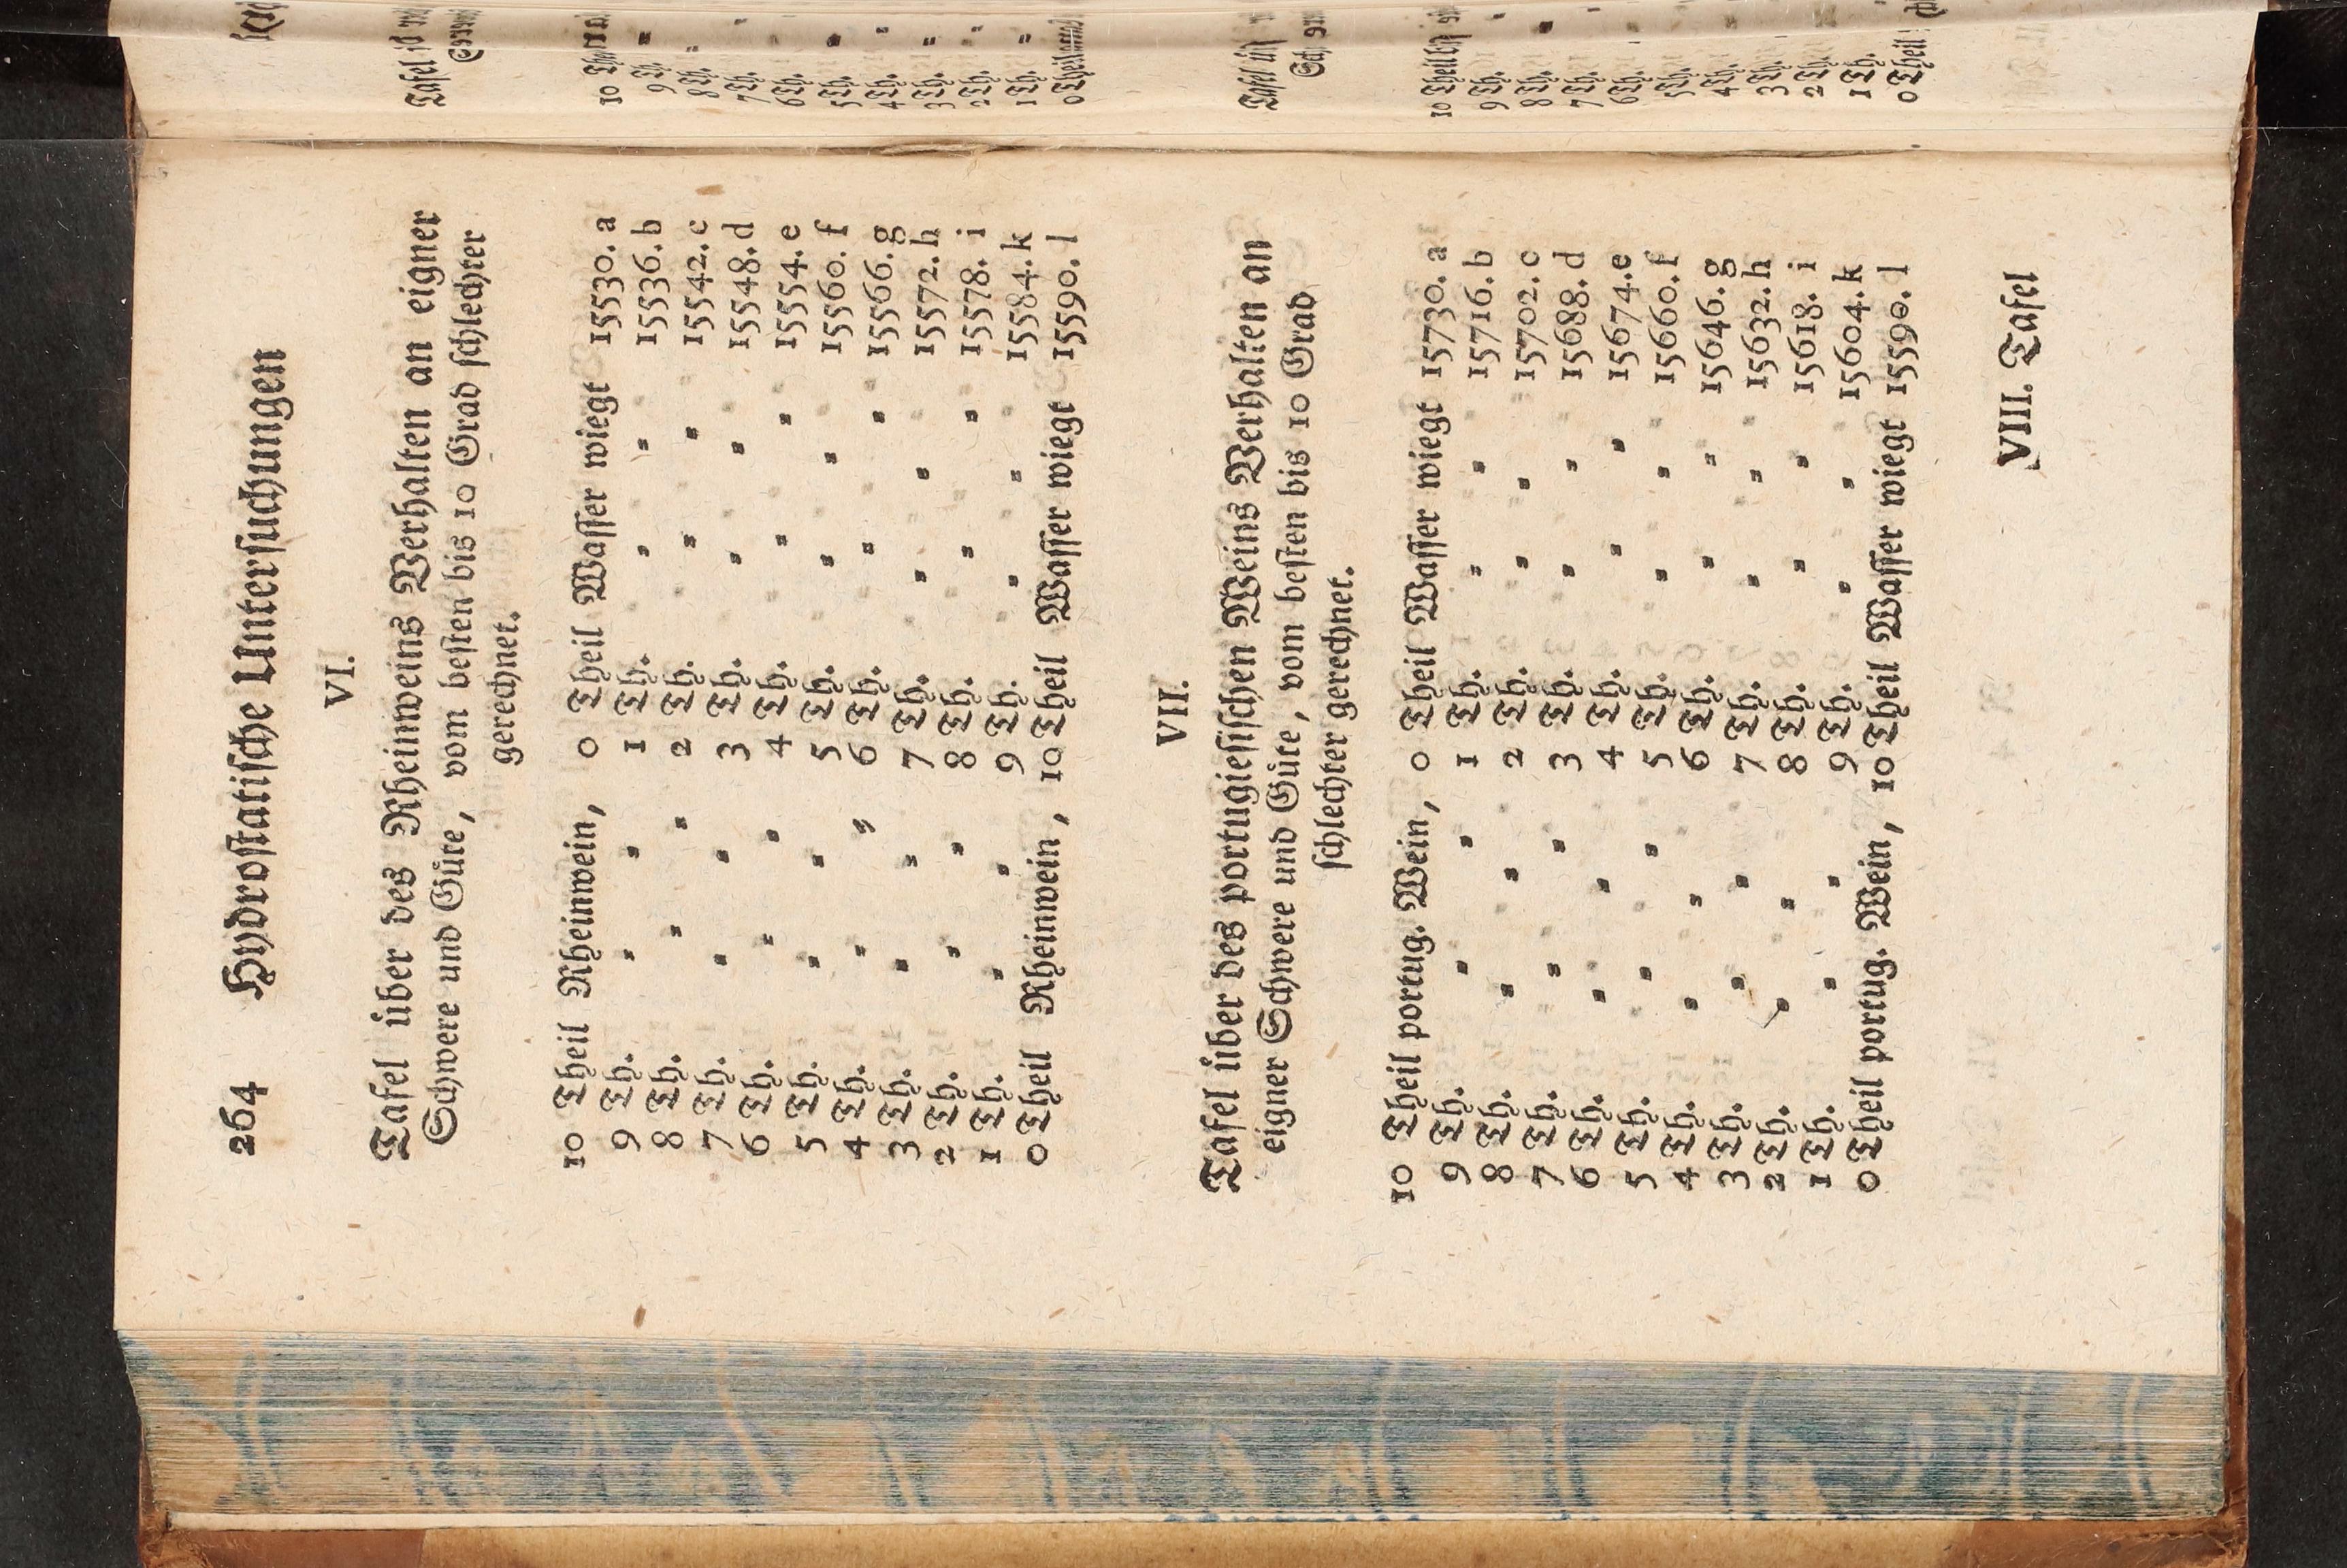 264 Hydrostatische Untersuchungen
VI.
Tafel über des Rheinweins Verhalten an eigner
Schwere und Güte, vom besten bis 10 Grad schlechter
gerechnet.
10 Theil Rheinwein, 0 Theil Wasser wiegt 15530. a
9 Th. " " 1 Th. " " 15536. b
8 Th. " " 2 Th. " " 15542. c
7 Th. " " 3 Th. " " 15548. d
6 Th. " " 4 Th. " " 15554. e
5 Th. " " 5 Th. " " 15560. f
4 Th. " " 6 Th. " " 15566. g
3 Th. " " 7 Th. " " 15572. h
2 Th. " " 8 Th. " " 15578. i
1 Th. " " 9 Th. " " 15584. k
0 Theil Rheinwein, 10 Theil Wasser wiegt 15590. l
VII.
Tafel über des portugiesischen Weins Verhalten an
eigner Schwere und Güte, vom besten bis 10 Grad
schlechter gerechnet.
10 Theil portug. Wein, 0 Theil Wasser wiegt 15730. a
9 Th. " " 1 Th. " " 15716. b
8 Th. " " 2 Th. " " 15702. c
7 Th. " " 3 Th. " " 15688. d
6 Th. " " 4 Th. " " 15674. e
5 Th. " " 5 Th. " " 15660. f
4 Th. " " 6 Th. " " 15646. g
3 Th. " " 7 Th. " " 15632. h
2 Th. " " 8 Th. " " 15618. i
1 Th. " " 9 Th. " " 15604. k
0 Theil portug. Wein, 10 Theil Wasser wiegt 15590. l
VIII. Tafel
Tafel
10
9 Th. "
8 Th. "
7 Th. "
6 Th. "
5 Th. "
4 Th. "
3 Th. "
2 Th. "
1 Th. "
0 Theil
Tafel
10 Theil
9 Th. "
8 Th. "
7 Th. "
6 Th. "
5 Th. "
4 Th. "
3 Th. "
2 Th. "
1 Th. "
0 Theil